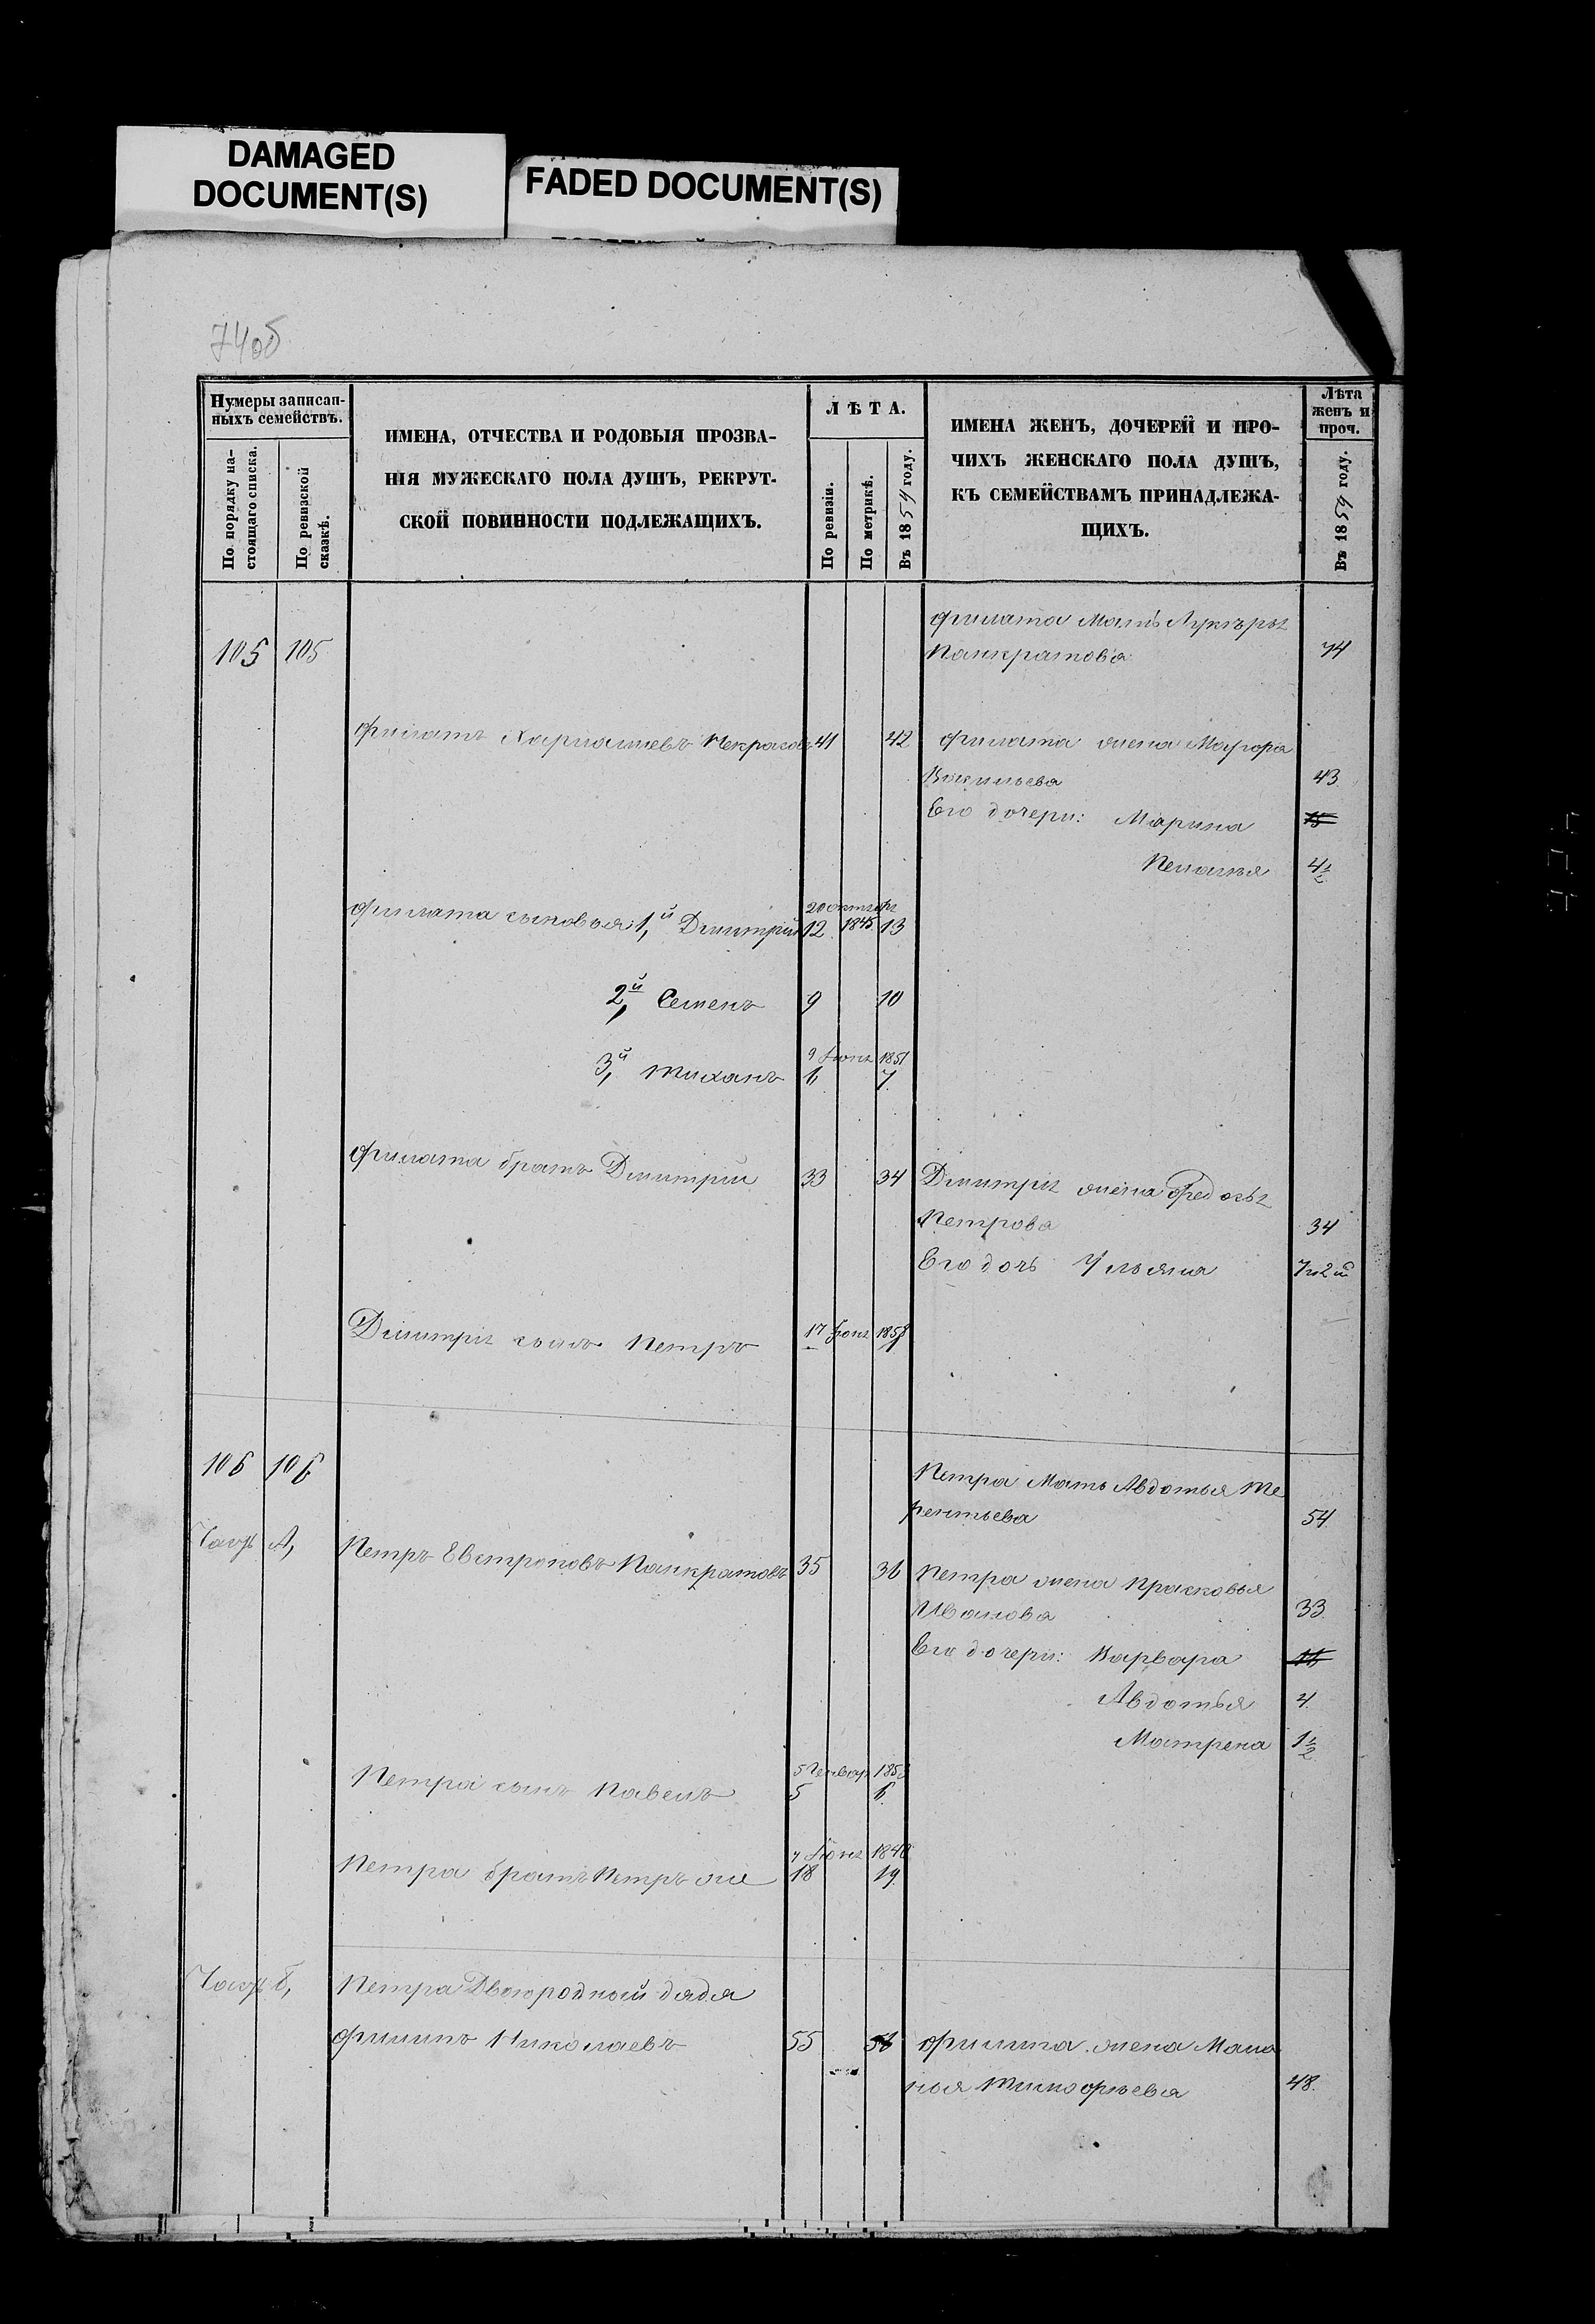 DAMAGED
DOCUMENT(S)
FADED DOCUMENT(S)
74об
Нумеры записан-
ныхъ семействъ.
По порядку на-
стоящаго списка.
По ревизской
сказкѣ.
ИМЕНА, ОТЧЕСТВА И РОДОВЫЯ ПРОЗВА-
НІЯ МУЖЕСКАГО ПОЛА ДУШЪ, РЕКРУТ-
СКОЙ ПОВИННОСТИ ПОДЛЕЖАЩИХЪ.
ЛѢТА.
По ревизіи.
По метрикѣ.
Въ 1859 году.
ИМЕНА ЖЕНЪ, ДОЧЕРЕЙ И ПРО-
ЧИХЪ ЖЕНСКАГО ПОЛА ДУШЪ,
КЪ СЕМЕЙСТВАМЪ ПРИНАДЛЕЖА-
ЩИХЪ.
Лѣта
женъ и
проч.
Въ 1859 году.
Филата Мать Лукѣрья
105 105 Панкратова 74
Филатъ Харлампіевъ Некрасовъ 41 42 Филата жена Мавра
Васильева 43
Его дочери: Марина 15
Пелагея 4½
20 октября
Филата сыновья: 1й, Дмитрій 12 1845 13
2й, Семенъ 9 10
9 Іюня 1851
3й, Тиханъ 6 7
Филата братъ Дмитрій 33 34 Дмитрія жена Федосья
Петрова 34
Его дочь Ульяна
Дмитрія сынъ Петръ 17 Іюня 1858
106 106 Петра Мать Авдотья Те
рентьева 54
Часть А, Петръ Евстроповъ Панкратовъ 35 36 Петра жена Прасковья
Иванова 33
Его дочери: Варвара 16
Авдотья 4
Матрена 1½
5 Генваря 1853
Петра сынъ Павелъ 5 6
Іюня 1840
Петра братъ Петръ же 18 19
Часть б, Петра Двоюродный дядя
Филипъ Николаевъ 55 56 Филипа жена Мала
нья Тимофѣева 48